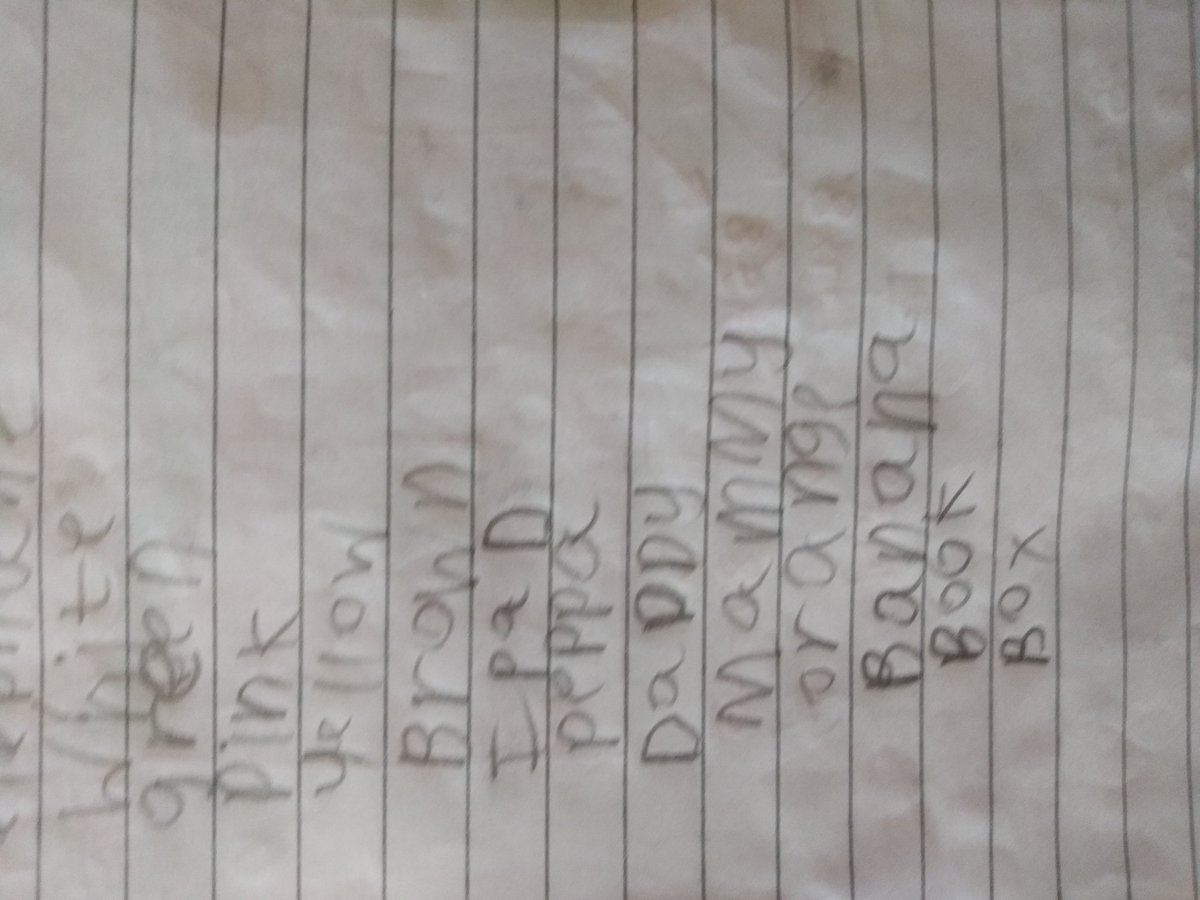 white
green
pink
yellow
Brown
IpaD
peppa
DaDDy
MaMMy
orange
Banana
Book
Box